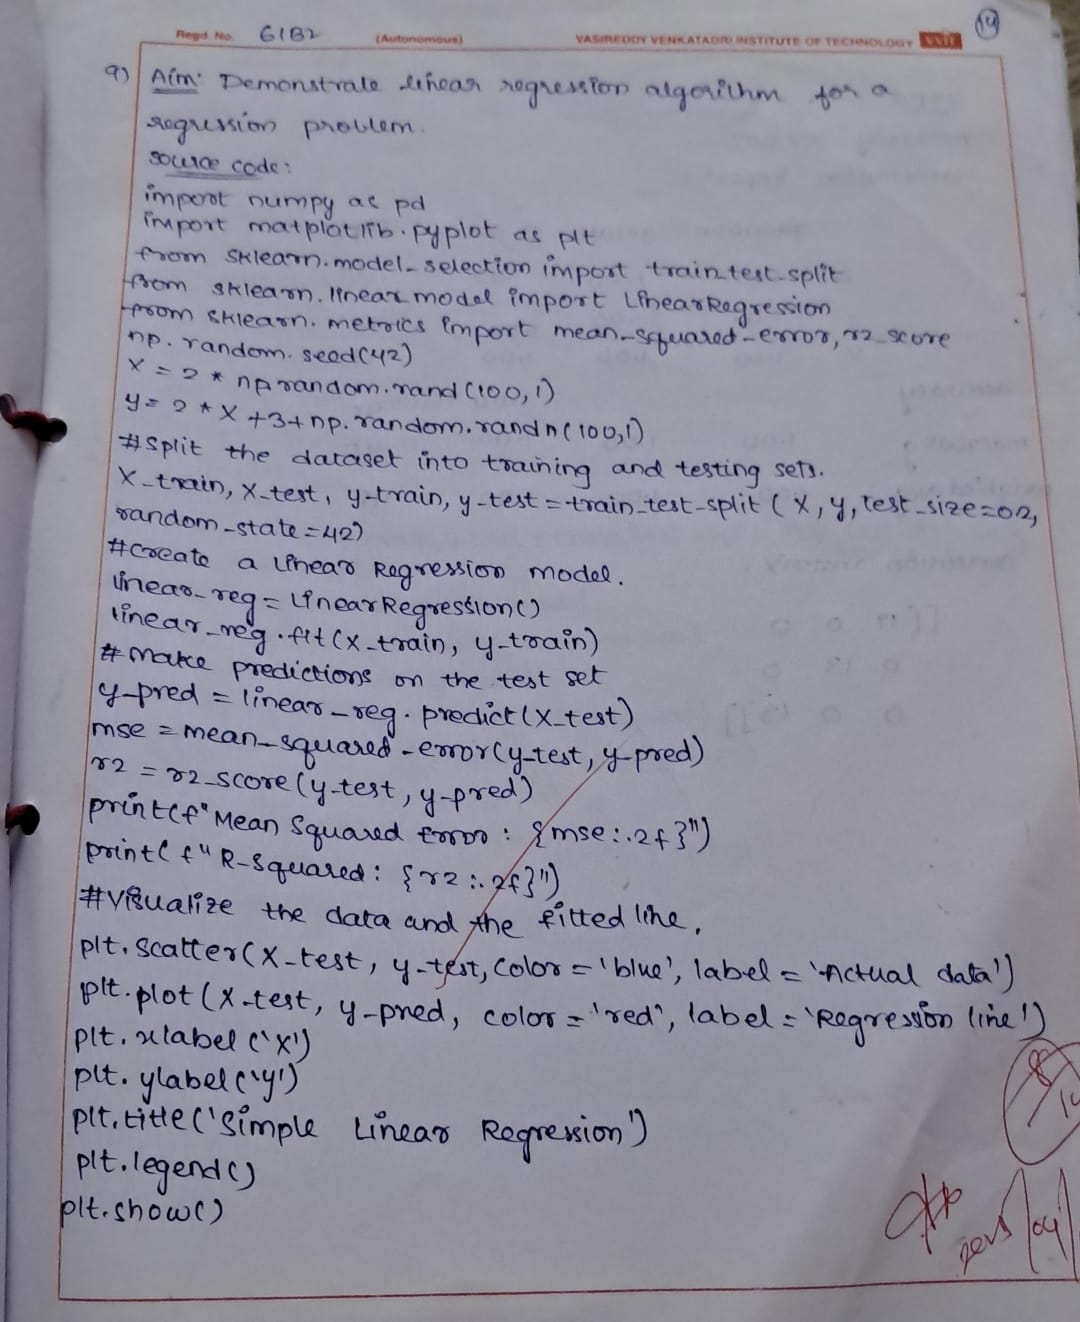 Regd. No. 61B2 (Autonomous) VASIREDDY VENKATADRI INSTITUTE OF TECHNOLOGY VVIT 14
9) Aim: Demonstrate linear regression algorithm for a
regression problem.
source code:
import numpy as pd
import matplotlib.pyplot as plt
from sklearn.model_selection import train_test_split
from sklearn.linear model import LinearRegression
from sklearn.metrics import mean_squared_error, r2_score
np.random.seed(42)
X = 2 * np random.rand(100,1)
y = 2 * X + 3 + np.random.randn(100,1)
#Split the dataset into training and testing sets.
X_train, X_test, y_train, y_test = train_test_split (X, y, test_size=02,
random_state=42)
#Create a linear Regression model.
linear_reg = LinearRegression()
linear_reg.fit(X_train, y_train)
# Make predictions on the test set
y_pred = linear_reg.predict(X_test)
mse = mean_squared_error(y_test, y_pred)
r2 = r2_score(y_test, y_pred)
print(f"Mean Squared Error: {mse:.2f}")
print(f"R-Squared: {r2:.2f}")
#Visualize the data and the fitted line.
plt.scatter(X_test, y_test, color='blue', label='Actual data')
plt.plot(X_test, y_pred, color='red', label='Regression line')
plt.xlabel('X')
plt.ylabel('y')
plt.title('Simple Linear Regression')
plt.legend()
plt.show()